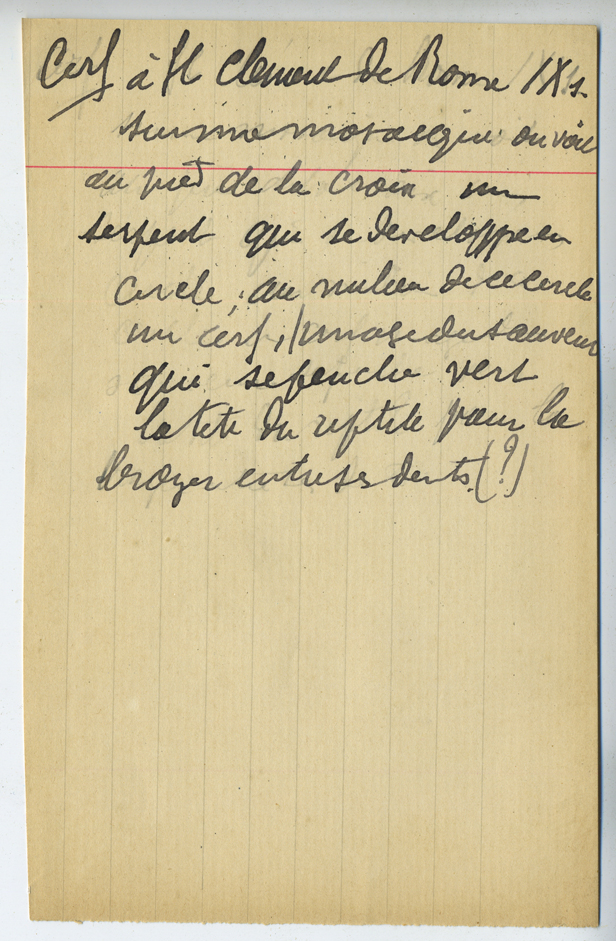 Cerf à St Clement de Rome IX s.
sur une mosaique on voit
au pied de la croix un
serpent qui se developpe en
cercle, au milieu de ce cercle
un cerf, image du sauveur
qui se penche vers
la tete du reptile pour la
broyer entre ses dents (?)